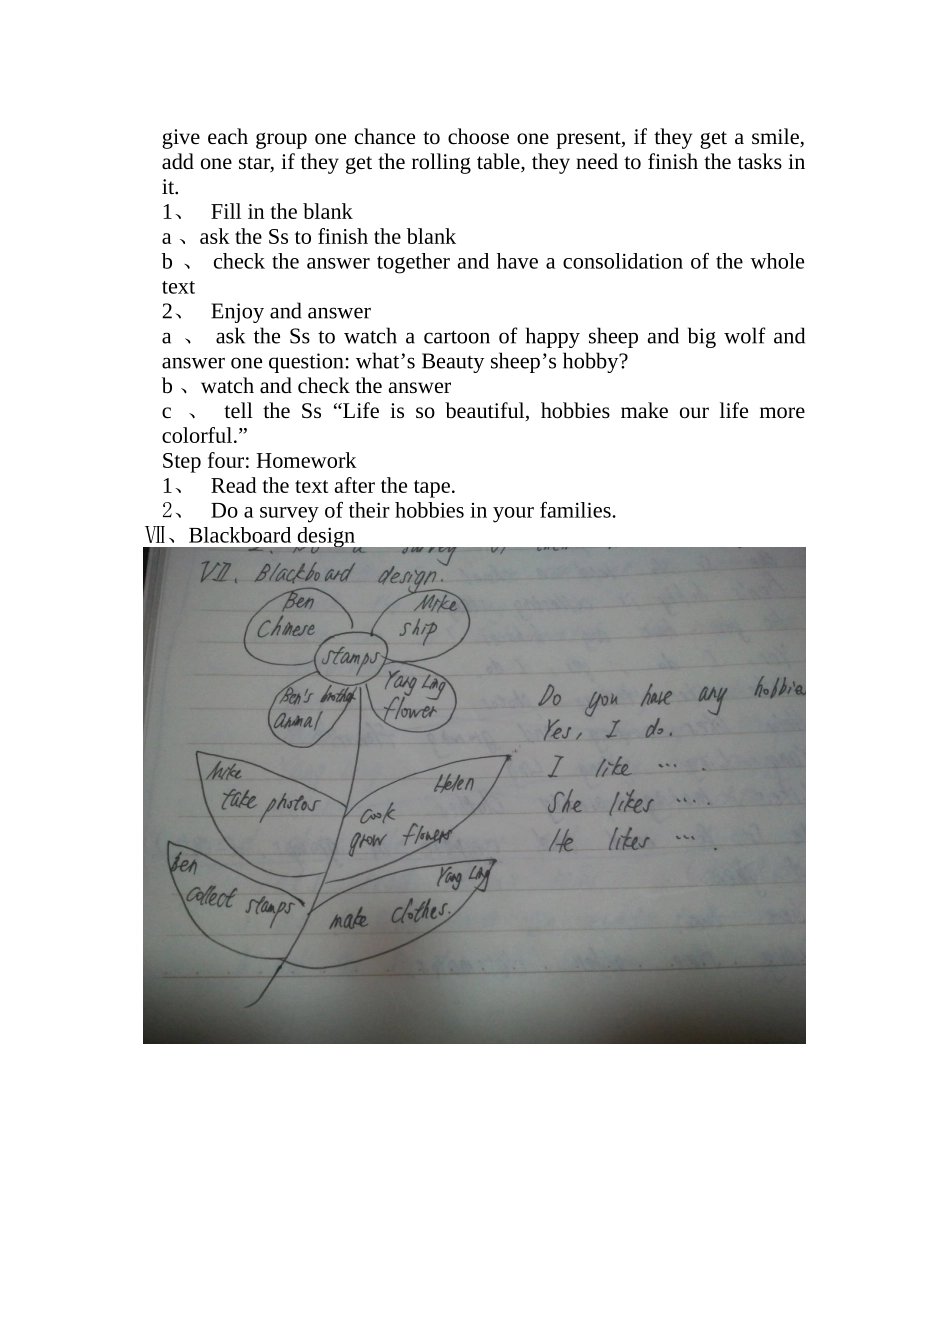 give each group one chance to choose one present, if they get a smile,
add one star, if they get the rolling table, they need to finish the tasks in
it.
1、 Fill in the blank
a 、ask the Ss to finish the blank
b 、 check the answer together and have a consolidation of the whole
text
2、 Enjoy and answer
a 、 ask the Ss to watch a cartoon of happy sheep and big wolf and
answer one question: what’s Beauty sheep’s hobby?
b 、watch and check the answer
c 、 tell the Ss “Life is so beautiful, hobbies make our life more
colorful.”
Step four: Homework
1、 Read the text after the tape.
2、 Do a survey of their hobbies in your families.
Ⅶ、Blackboard design
VII、Blackboard design.
Ben
Chinese
Mike
ship
stamps
Ben's brother
animal
Yang Ling
flower
Mike
take photos
Helen
cook
grow flowers
Ben
collect stamps
Yang Ling
make clothes.
Do you have any hobbie
Yes, I do.
I like ... .
She likes ... .
He likes ... .